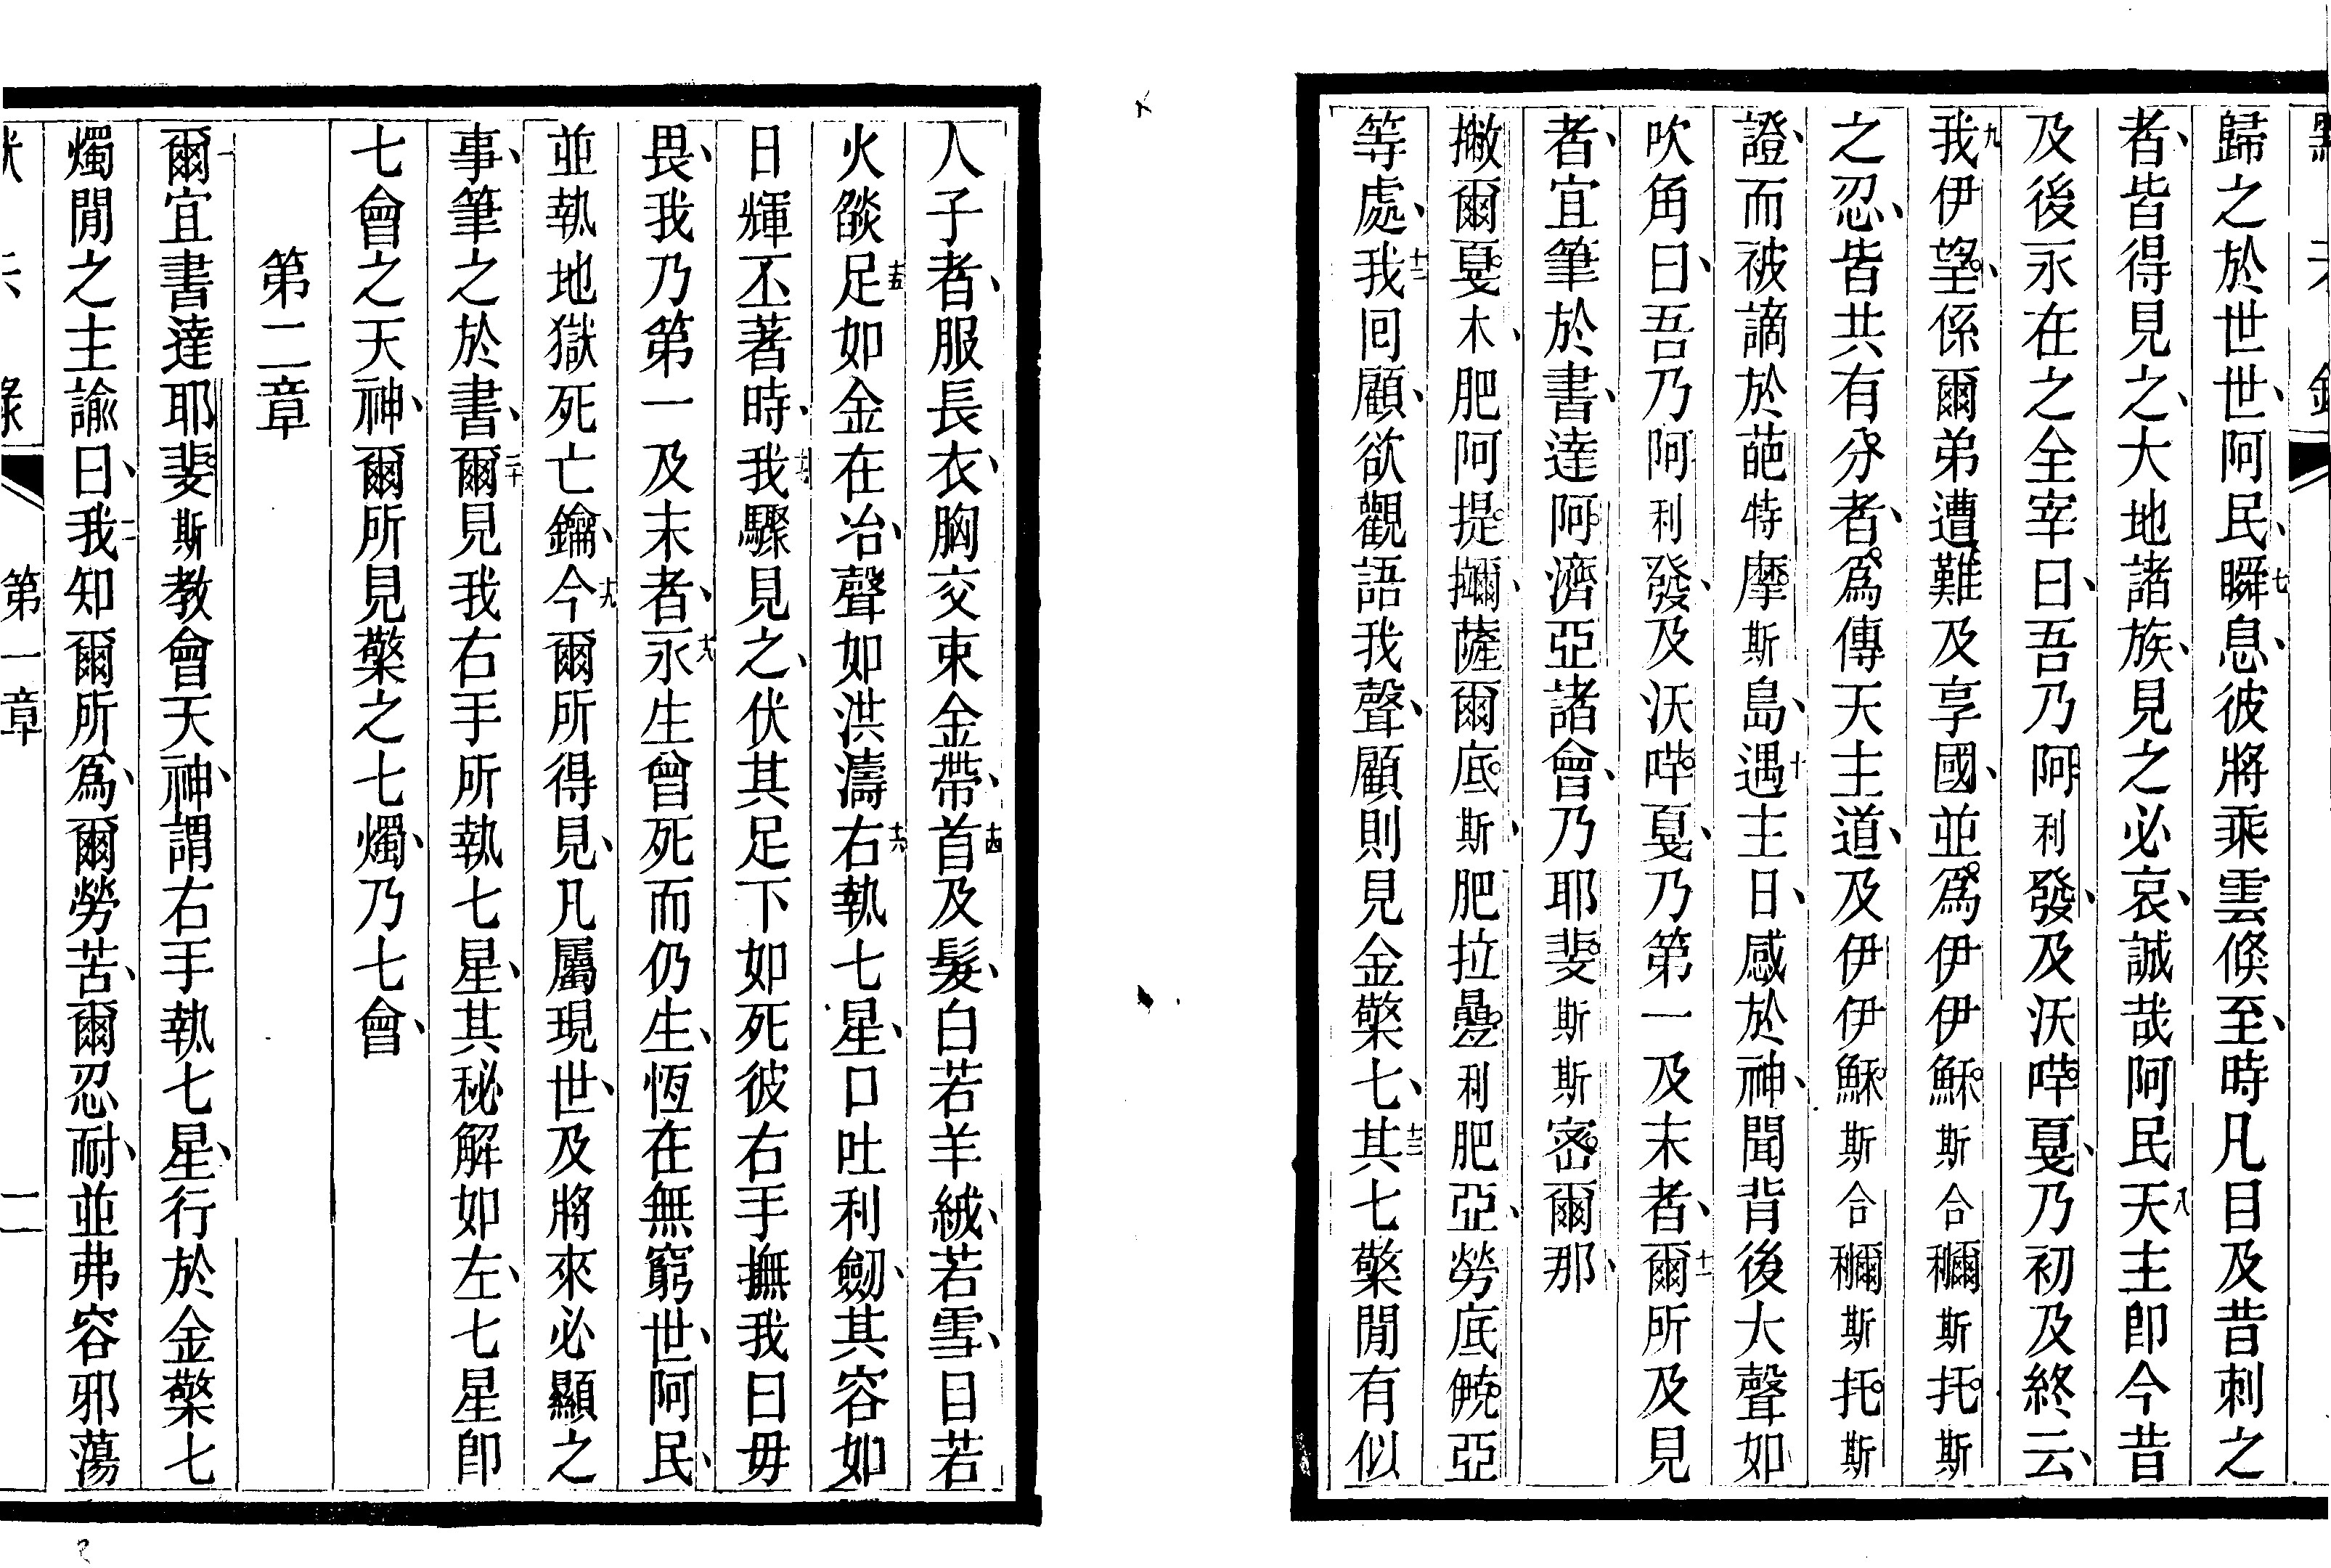 歸之於世世、阿民、七瞬息、彼將乘雲倏至、時凡目及昔刺之
者、皆得見之、大地諸族、見之必哀、誠哉阿民、八天主即今昔
及後永在之全宰曰、吾乃阿利發、及沃嗶戛、乃初及終云、
九我伊望、係爾弟遭難及享國、並爲伊伊穌斯合穪斯托斯
之忍、皆共有分者、爲傳天主道、及伊伊穌斯合穪斯托斯
證、而被謫於葩特摩斯島、十遇主日、感於神、聞背後大聲如
吹角、曰吾乃阿利發、及沃嗶戛、乃第一及末者、十一爾所及見
者、宜筆於書、達阿濟亞諸會、乃耶斐斯斯密爾那、
撇爾戛木、肥阿提擟、薩爾底斯、肥拉疊利肥亞、勞底亞
等處、十二我回顧、欲觀語我聲、顧則見金檠七、十三其七檠閒有似
人子者、服長衣、胸交束金帶、十四首及髮、白若羊絨、若雪、目若
火燄、十五足如金在冶、聲如洪濤、十六右執七星、口吐利劒、其容如
日輝丕著時、十七我驟見之、伏其足下如死、彼右手撫我曰毋
畏、我乃第一及末者、十八永生曾死而仍生、恆在無窮世、阿民、
並執地獄死亡鑰、十九今爾所得見、凡屬現世、及將來必顯之
事、筆之於書、二十爾見我右手所執七星、其秘解如左、七星卽
七會之天神、爾所見檠之七燭、乃七會、
第二章
一爾宜書達耶斐斯教會天神、謂右手執七星、行於金檠七
燭閒之主諭曰、二我知爾所爲、爾勞苦、爾忍耐、並弗容邪蕩
第一章
二